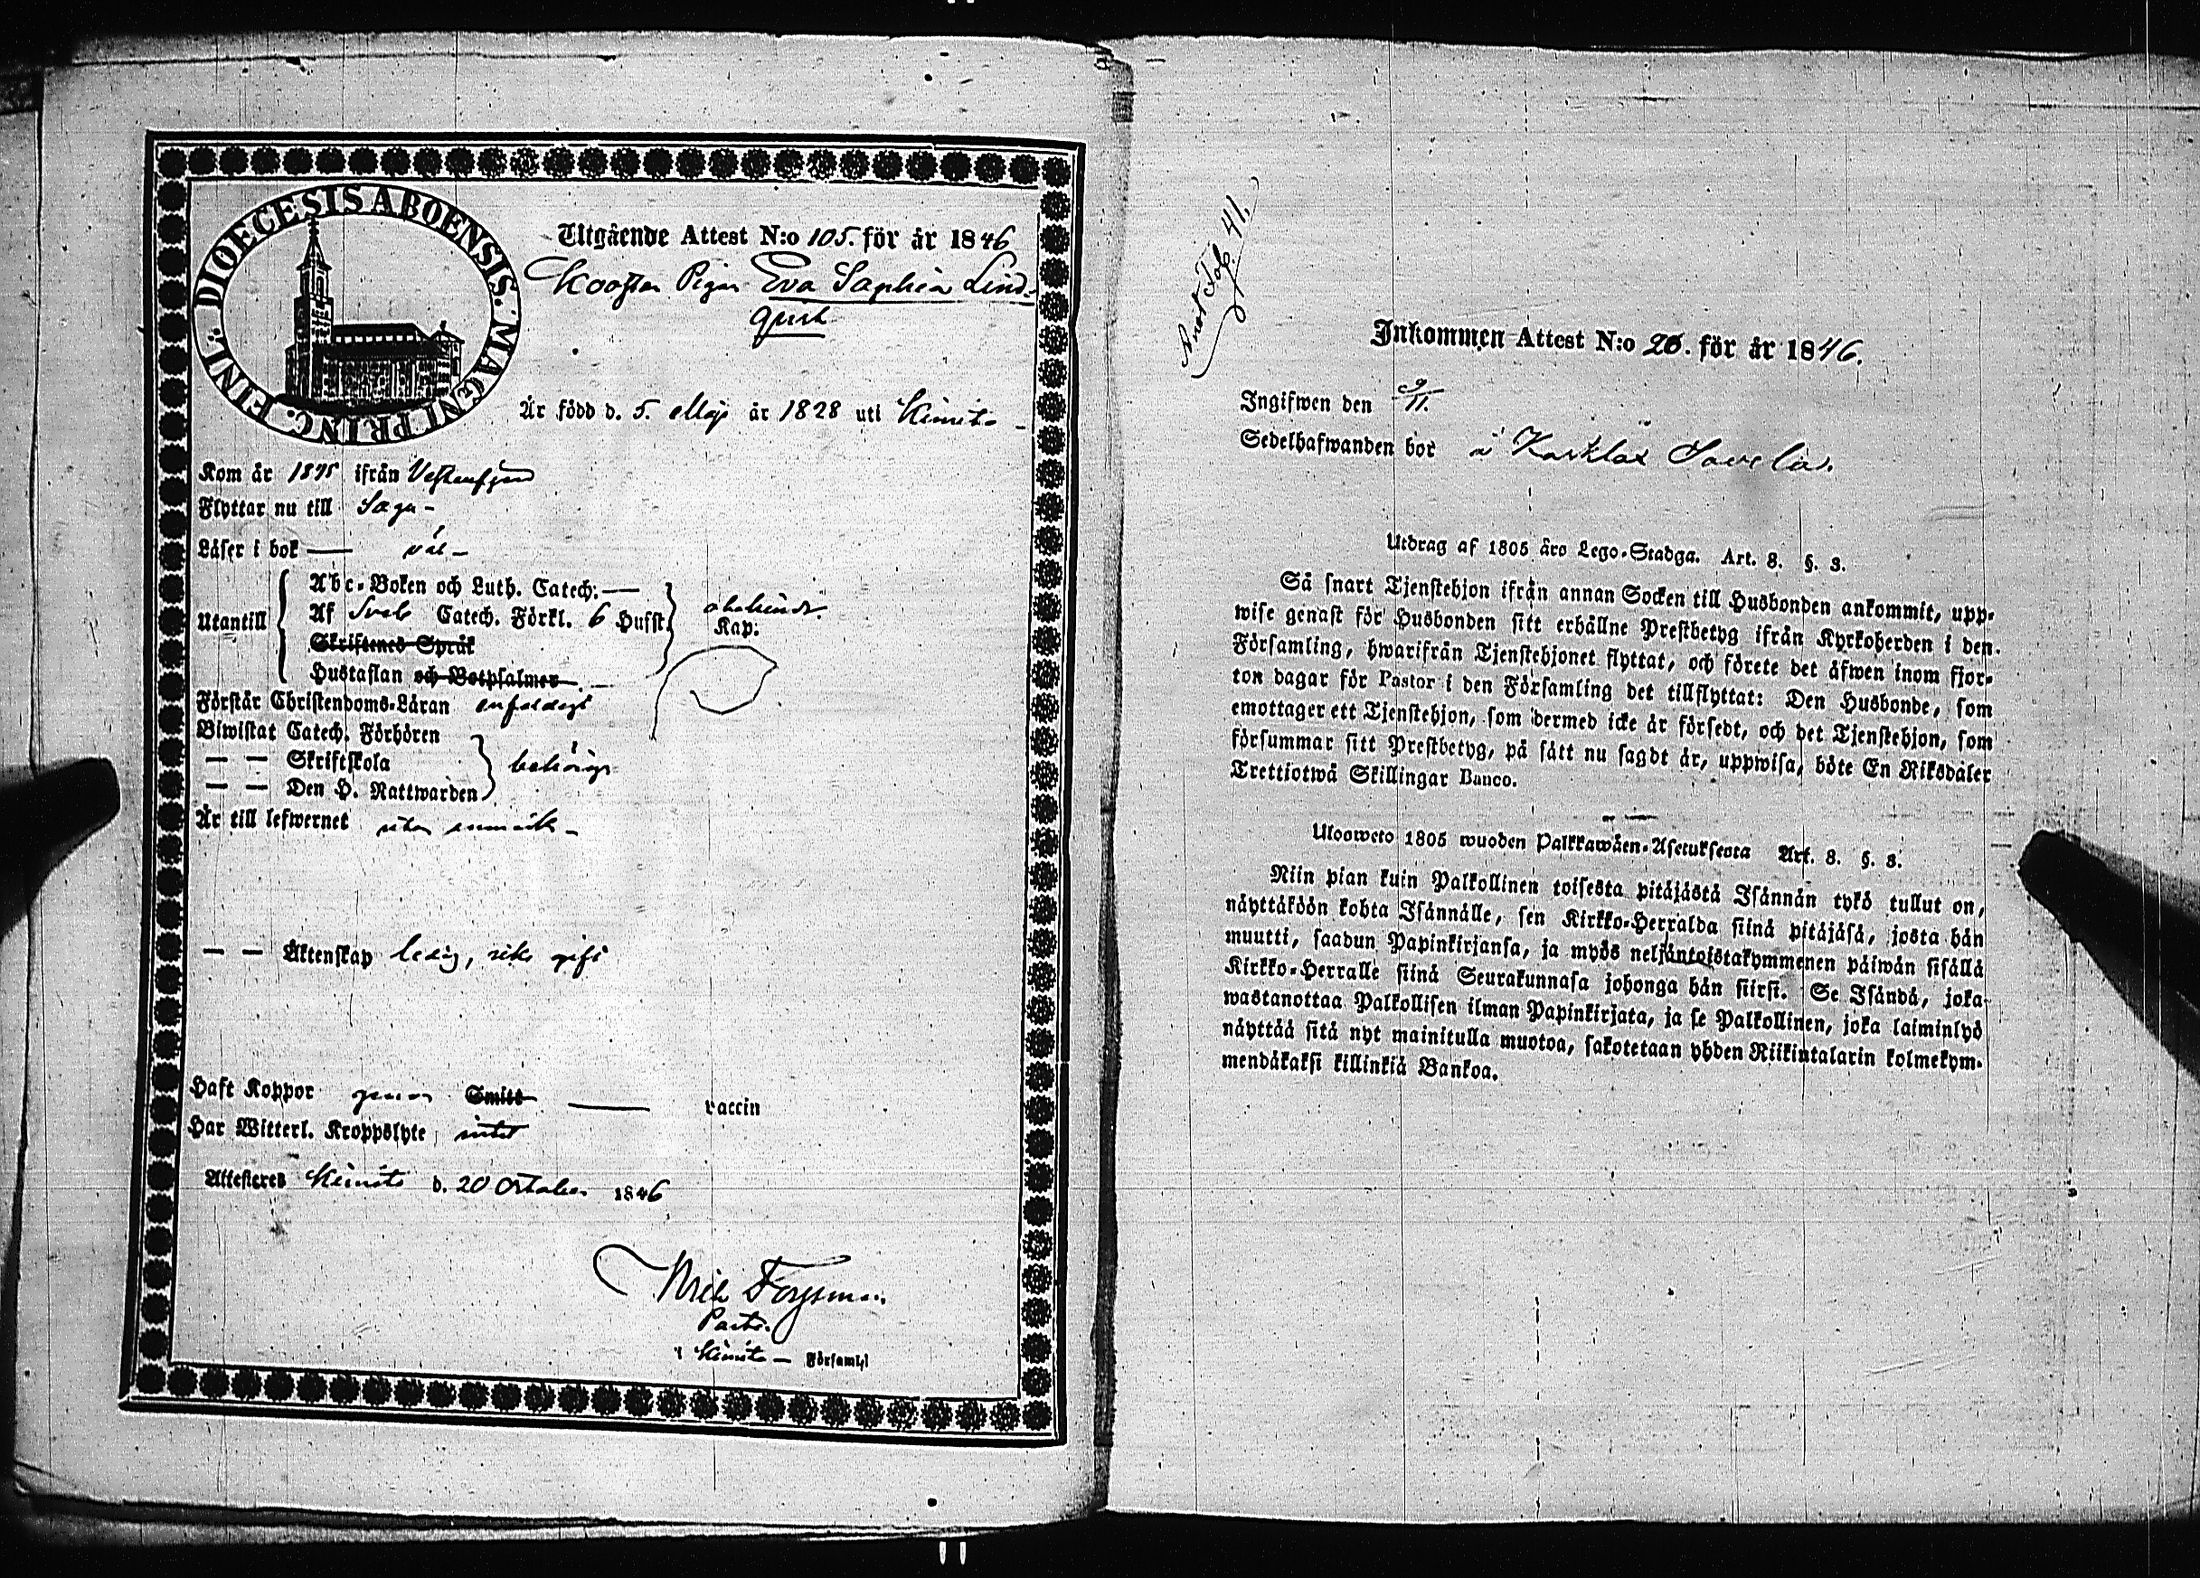 DIOECESIS ABOENSIS. MAGNI PRINC. FINL.
Utgående Attest N:o 105. för år 1846
Pigan Eva Sophia Lind-
qvist
Är född d. 5. Maji år 1828 uti Kimito
Kom år 1845 ifrån Vestanfjerd
Flyttar nu till Sagu -
Läser i bok — väl -
Utantill
Abc-Boken och Luth. Catech: —
Af Sveb Catech. Förkl. 6 Husst.
obehindr.
Kap:
Skriftenes Språk
Hustaflan och Botpsalmer
Förstår Christendoms-Läran enfaldigt
Biwistat Catech. Förhören
— — Skriftskola
behörigt
— — Den H. Nattwarden
Är till lefwernet utan anmärk -
— — Äktenskap ledig, icke gift
Haft Koppor genom Smitt — vaccin
Har Witterl. Kroppslyte, intet
Attesteras Kimito d. 20 October 1846
Forssman
Pastor
i Kimito — Församlg
Fol. 41.
Inkommen Attest N:o 26. för år 1846.
Ingifwen den 9/11.
Sedelhafwanden bor å Karklax Savela.
Utdrag af 1805 års Lego-Stadga. Art. 8. §. 3.
Så snart Tjenstehjon ifrån annan Socken till Husbonden ankommit, upp-
wise genast för Husbonden sitt erhållne Prestbetyg ifrån Kyrkoherden i den
Församling, hwarifrån Tjenstehjonet flyttat, och förete det äfwen inom fjor-
ton dagar för Pastor i den Församling det tillflyttat: Den Husbonde, som
emottager ett Tjenstehjon, som dermed icke är försedt, och det Tjenstehjon, som
försummar sitt Prestbetyg, på sätt nu sagdt är, uppwisa, böte En Riksdaler
Trettiotwå Skillingar Banco.
Ulosweto 1805 wuoden Palkkawäen-Asetuksesta Art. 8. §. 3.
Niin pian kuin Palkollinen toisesta pitäjästä Isännän tykö tullut on,
näyttäköön kohta Isännälle, sen Kirkko-Herralda siinä pitäjäsä, josta hän
muutti, saadun Papinkirjansa, ja myös neljäntoistakymmenen päiwän sisällä
Kirkko-Herralle siinä Seurakunnasa johonga hän siirsi. Se Isändä, joka
wastanottaa Palkollisen ilman Papinkirjata, ja se Palkollinen, joka laiminlyö
näyttää sitä nyt mainitulla muotoa, sakotetaan yhden Riikintalarin kolmekym-
mendäkaksi killinkiä Bankoa.